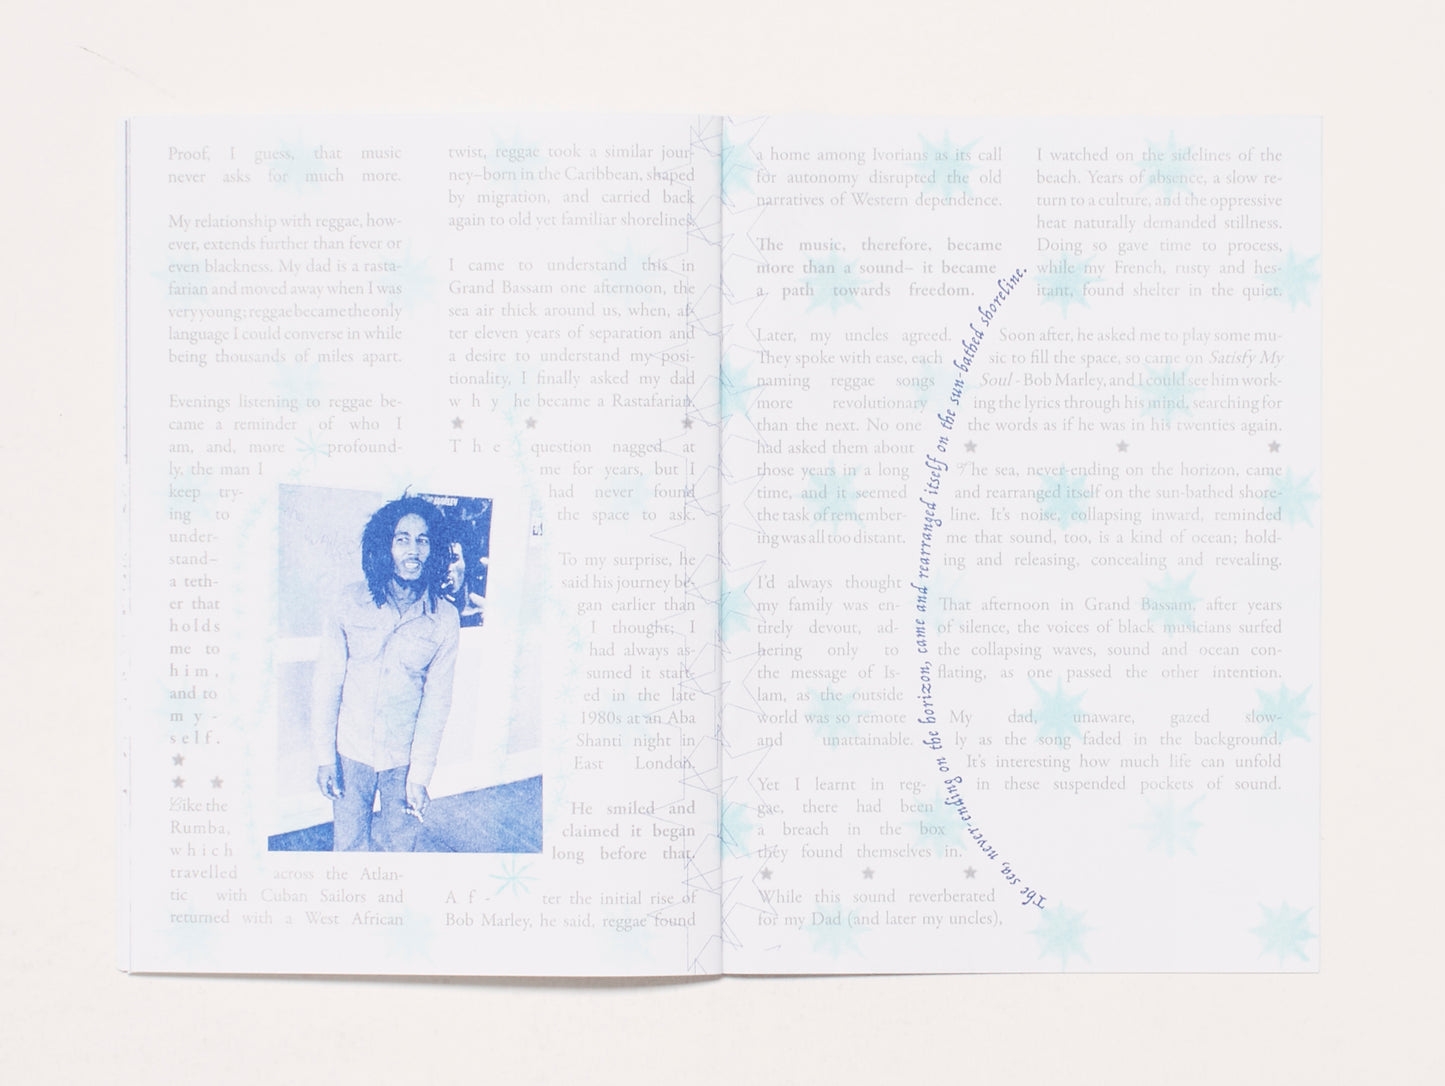 Proof, I guess, that music
never asks for much more.
My relationship with reggae, how-
ever, extends further than fever or
even blackness. My dad is a rasta-
farian and moved away when I was
very young: reggae became the only
language I could converse in while
being thousands of miles apart.
Evenings listening to reggae be-
came a reminder of who I
am, and, more profound-
ly, the man I
keep try-
ing to
under-
stand–
a teth-
er that
holds
me to
him,
and to
my-
self.
Like the
Rumba,
which
travelled across the Atlan-
tic with Cuban Sailors and
returned with a West African
twist, reggae took a similar jour-
ney–born in the Caribbean, shaped
by migration, and carried back
again to old yet familiar shorelines.
I came to understand this in
Grand Bassam one afternoon, the
sea air thick around us, when, af-
ter eleven years of separation and
a desire to understand my posi-
tionality, I finally asked my dad
why he became a Rastafarian.
The question nagged at
me for years, but I
had never found
the space to ask.
To my surprise, he
said his journey be-
gan earlier than
I thought; I
had always as-
sumed it start-
ed in the late
1980s at an Aba
Shanti night in
East London.
He smiled and
claimed it began
long before that.
Af- ter the initial rise of
Bob Marley, he said, reggae found
a home among Ivorians as its call
for autonomy disrupted the old
narratives of Western dependence.
The music, therefore, became
more than a sound– it became
a path towards freedom.
Later, my uncles agreed.
They spoke with ease, each
naming reggae songs
more revolutionary
than the next. No one
had asked them about
those years in a long
time, and it seemed
the task of remember-
ing was all too distant.
I'd always thought
my family was en-
tirely devout, ad-
hering only to
the message of Is-
lam, as the outside
world was so remote
and unattainable.
Yet I learnt in reg-
gae, there had been
a breach in the box
they found themselves in.
While this sound reverberated
for my Dad (and later my uncles),
The sea, never-ending on the horizon, came and rearranged itself on the sun-bathed shoreline.
I watched on the sidelines of the
beach. Years of absence, a slow re-
turn to a culture, and the oppressive
heat naturally demanded stillness.
Doing so gave time to process,
while my French, rusty and hes-
itant, found shelter in the quiet.
Soon after, he asked me to play some mu-
sic to fill the space, so came on Satisfy My
Soul - Bob Marley, and I could see him work-
ing the lyrics through his mind, searching for
the words as if he was in his twenties again.
The sea, never-ending on the horizon, came
and rearranged itself on the sun-bathed shore-
line. It's noise, collapsing inward, reminded
me that sound, too, is a kind of ocean; hold-
ing and releasing, concealing and revealing.
That afternoon in Grand Bassam, after years
of silence, the voices of black musicians surfed
the collapsing waves, sound and ocean con-
flating, as one passed the other intention.
My dad, unaware, gazed slow-
ly as the song faded in the background.
It's interesting how much life can unfold
in these suspended pockets of sound.